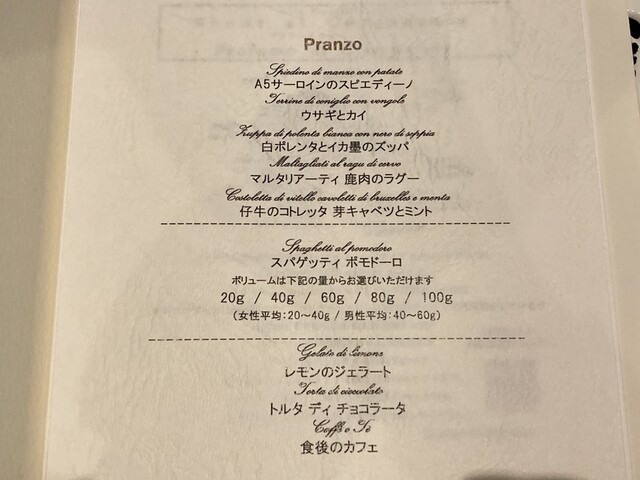 Pranzo
Spiedino di manzo con patate
A5サーロインのスピエディーノ
Terrine di coniglio con vongole
ウサギとカイ
Zuppa di polenta bianca con nero di seppia
白ポレンタとイカ墨のズッパ
Maltagliati al ragu di cervo
マルタリアーティ 鹿肉のラグー
Costoletta di vitello cavoletti di bruxelles e menta
仔牛のコトレッタ 芽キャベツとミント
Spaghetti al pomodoro
スパゲッティ ポモドーロ
ボリュームは下記の量からお選びいただけます
20g / 40g / 60g / 80g / 100g
(女性平均:20～40g / 男性平均:40～60g)
Gelato di limone
レモンのジェラート
Torta di cioccolato
トルタ ディ チョコラータ
Caffè o Tè
食後のカフェ